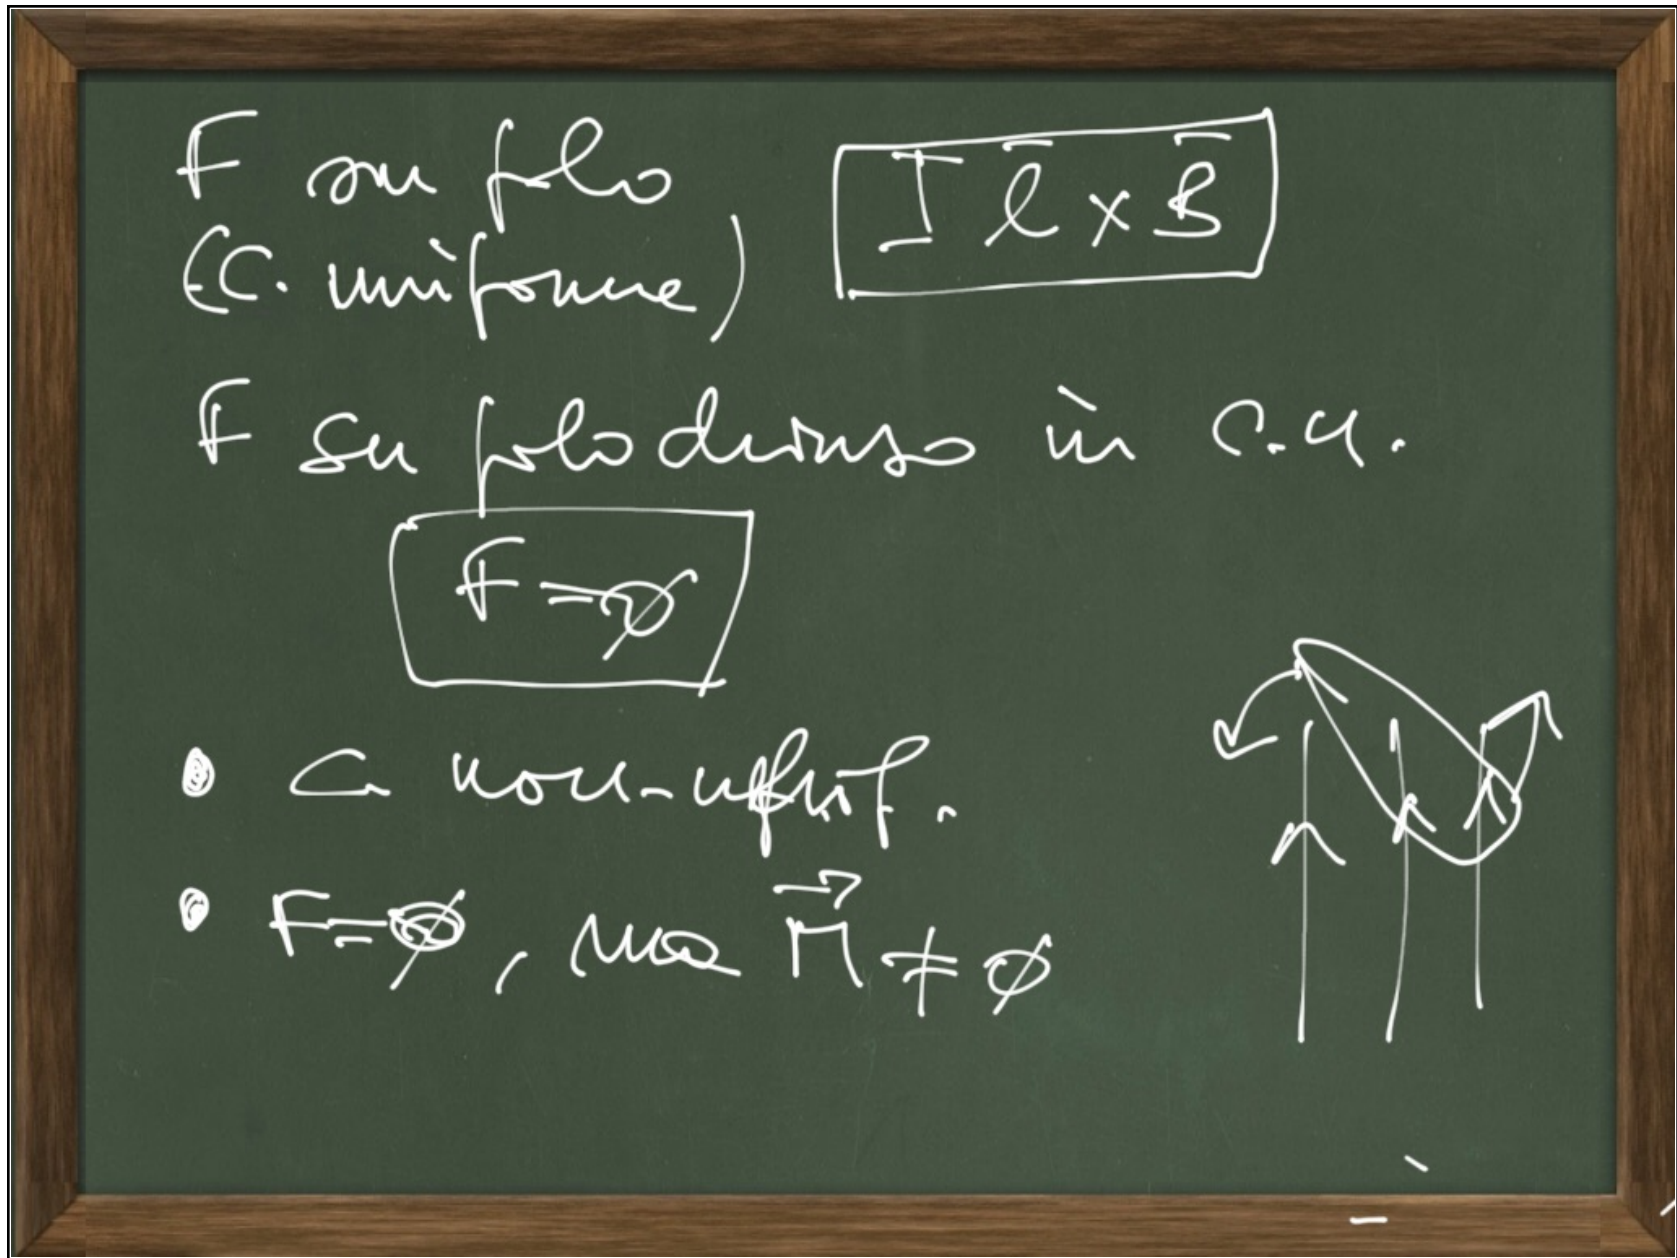 F su filo
I l̅ × B̅
(C. uniforme)
F su filo chiuso in C.U.
F = ∅
• C non-unif.
• F = ∅, ma M⃗ ≠ ∅